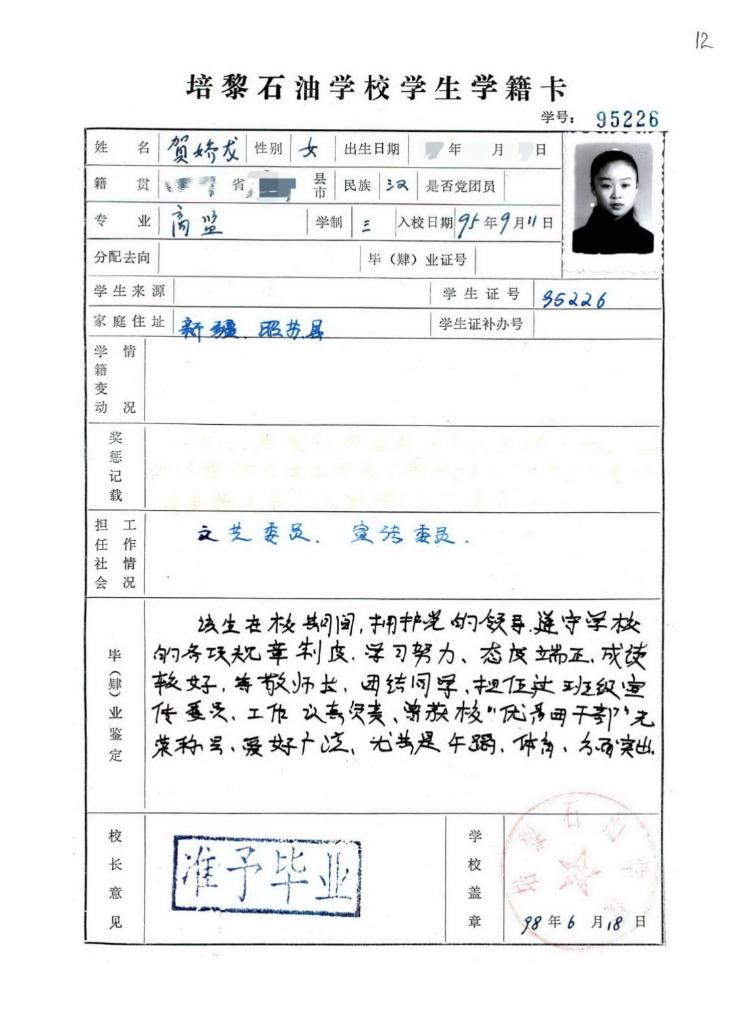 12
培黎石油学校学生学籍卡
学号: 95226
姓名 贺娇龙 性别 女 出生日期 年 月 日
籍贯 省 县市 民族 汉 是否党团员
专业 商监 学制 三 入校日期 95年9月11日
分配去向 毕(肆)业证号
学生来源 学生证号 95226
家庭住址 新疆.昭苏县 学生证补办号
学籍变动情况
奖惩记载
担任社会工作情况 文艺委员、宣传委员.
毕(肆)业鉴定
该生在校期间,拥护党的领导.遵守学校
的各项规章制度.学习努力、态度端正.成绩
较好,尊敬师长,团结同学,担任过班级宣
传委员、工作认真负责、曾获校"优秀团干部"光
荣称号、爱好广泛,尤其是午蹈、体育、方面突出.
校长意见 准予毕业 学校盖章
培黎石油学校
98年6月18日